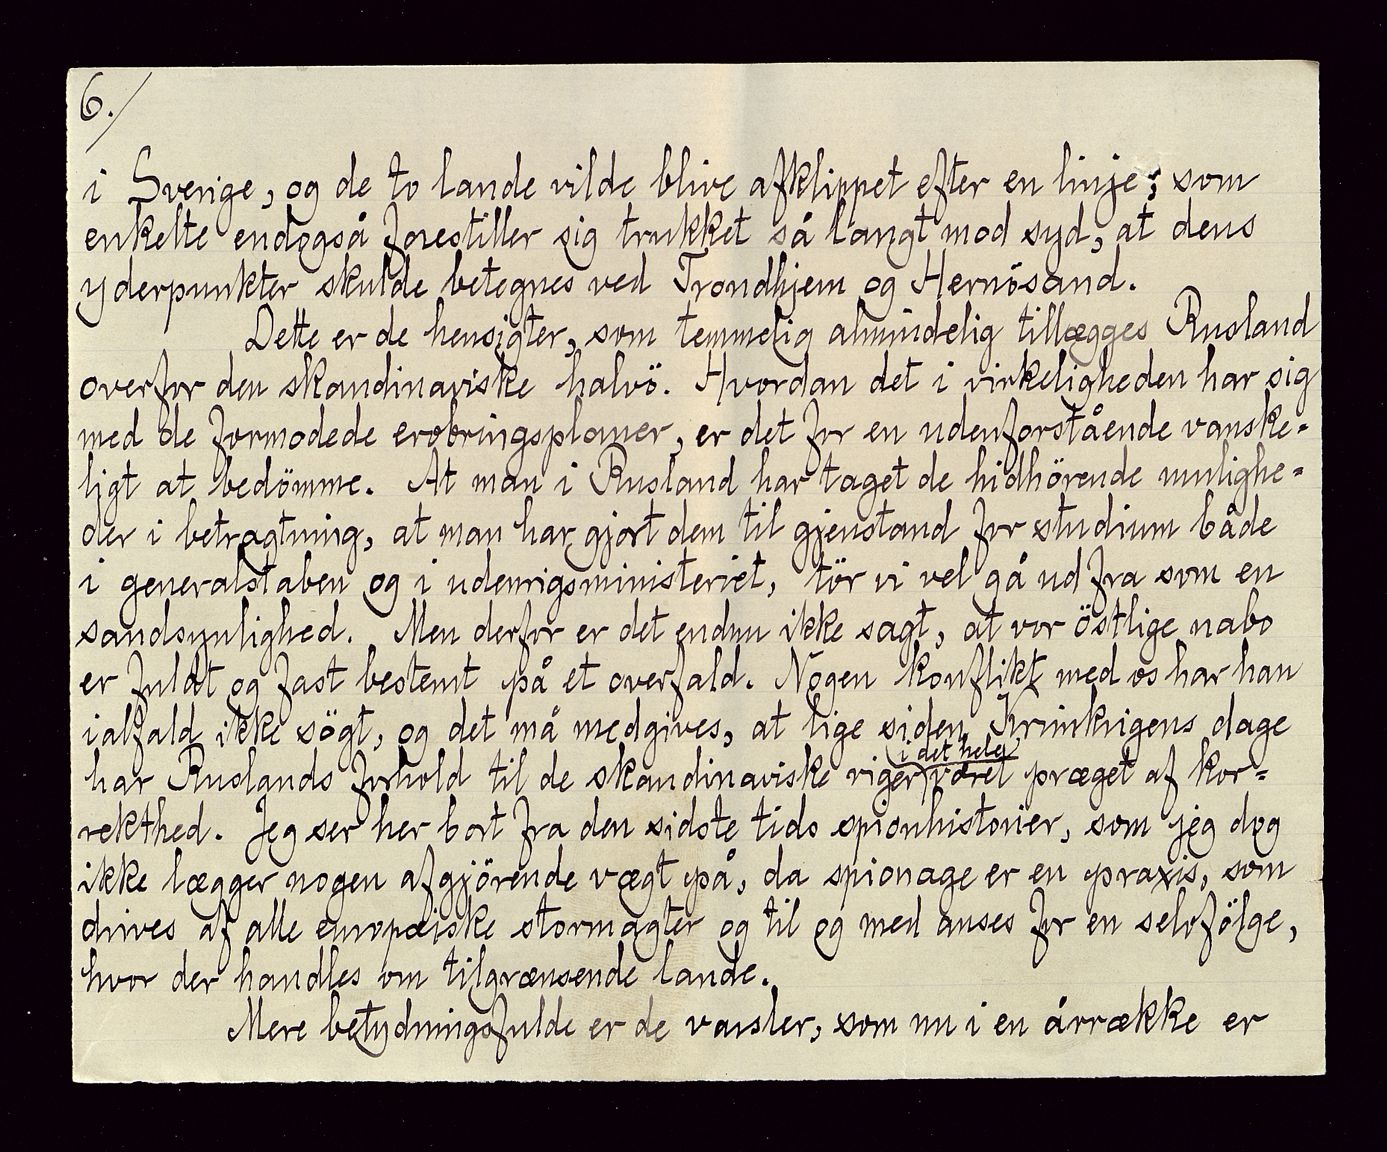 6./
i Sverige, og de to lande vilde blive afklippet efter en linje; som
enkelte endogså forestiller sig trukket så langt mod syd, at dens
yderpunkter skulde betegnes ved Trondhjem og Hernösand.
Dette er de hensigter, som temmelig almindelig tillægges Rusland
overfor den skandinaviske halvö. Hvordan det i virkeligheden har sig
med de formodede erobringsplaner, er det for en udenforstående vanske-
ligt at bedömme. At man i Rusland har taget de hidhörende mulighe-
der i betragtning, at man har gjort dem til gjenstand for studium både
i generalstaben og i udenrigsministeriet, tör vi vel gå ud fra som en
sandsynlighed. Men derfor er det endnu ikke sagt, at vor östlige nabo
er fuldt og fast bestemt på et overfald. Nogen konflikt med os har han
ialfald ikke sögt, og det må medgives, at lige siden Krimkrigens dage
har Ruslands forhold til de skandinaviske riger i det hele været præget af kor-
rekthed. Jeg ser her bort fra den sidste tids spionhistorier, som jeg dog
ikke lægger nogen afgjörende vægt på, da spionage er en praxis, som
drives af alle europæiske stormagter og til og med anses for en selvfölge,
hvor der handles om tilgrænsende lande.
Mere betydningsfulde er de varsler, som nu i en årrække er